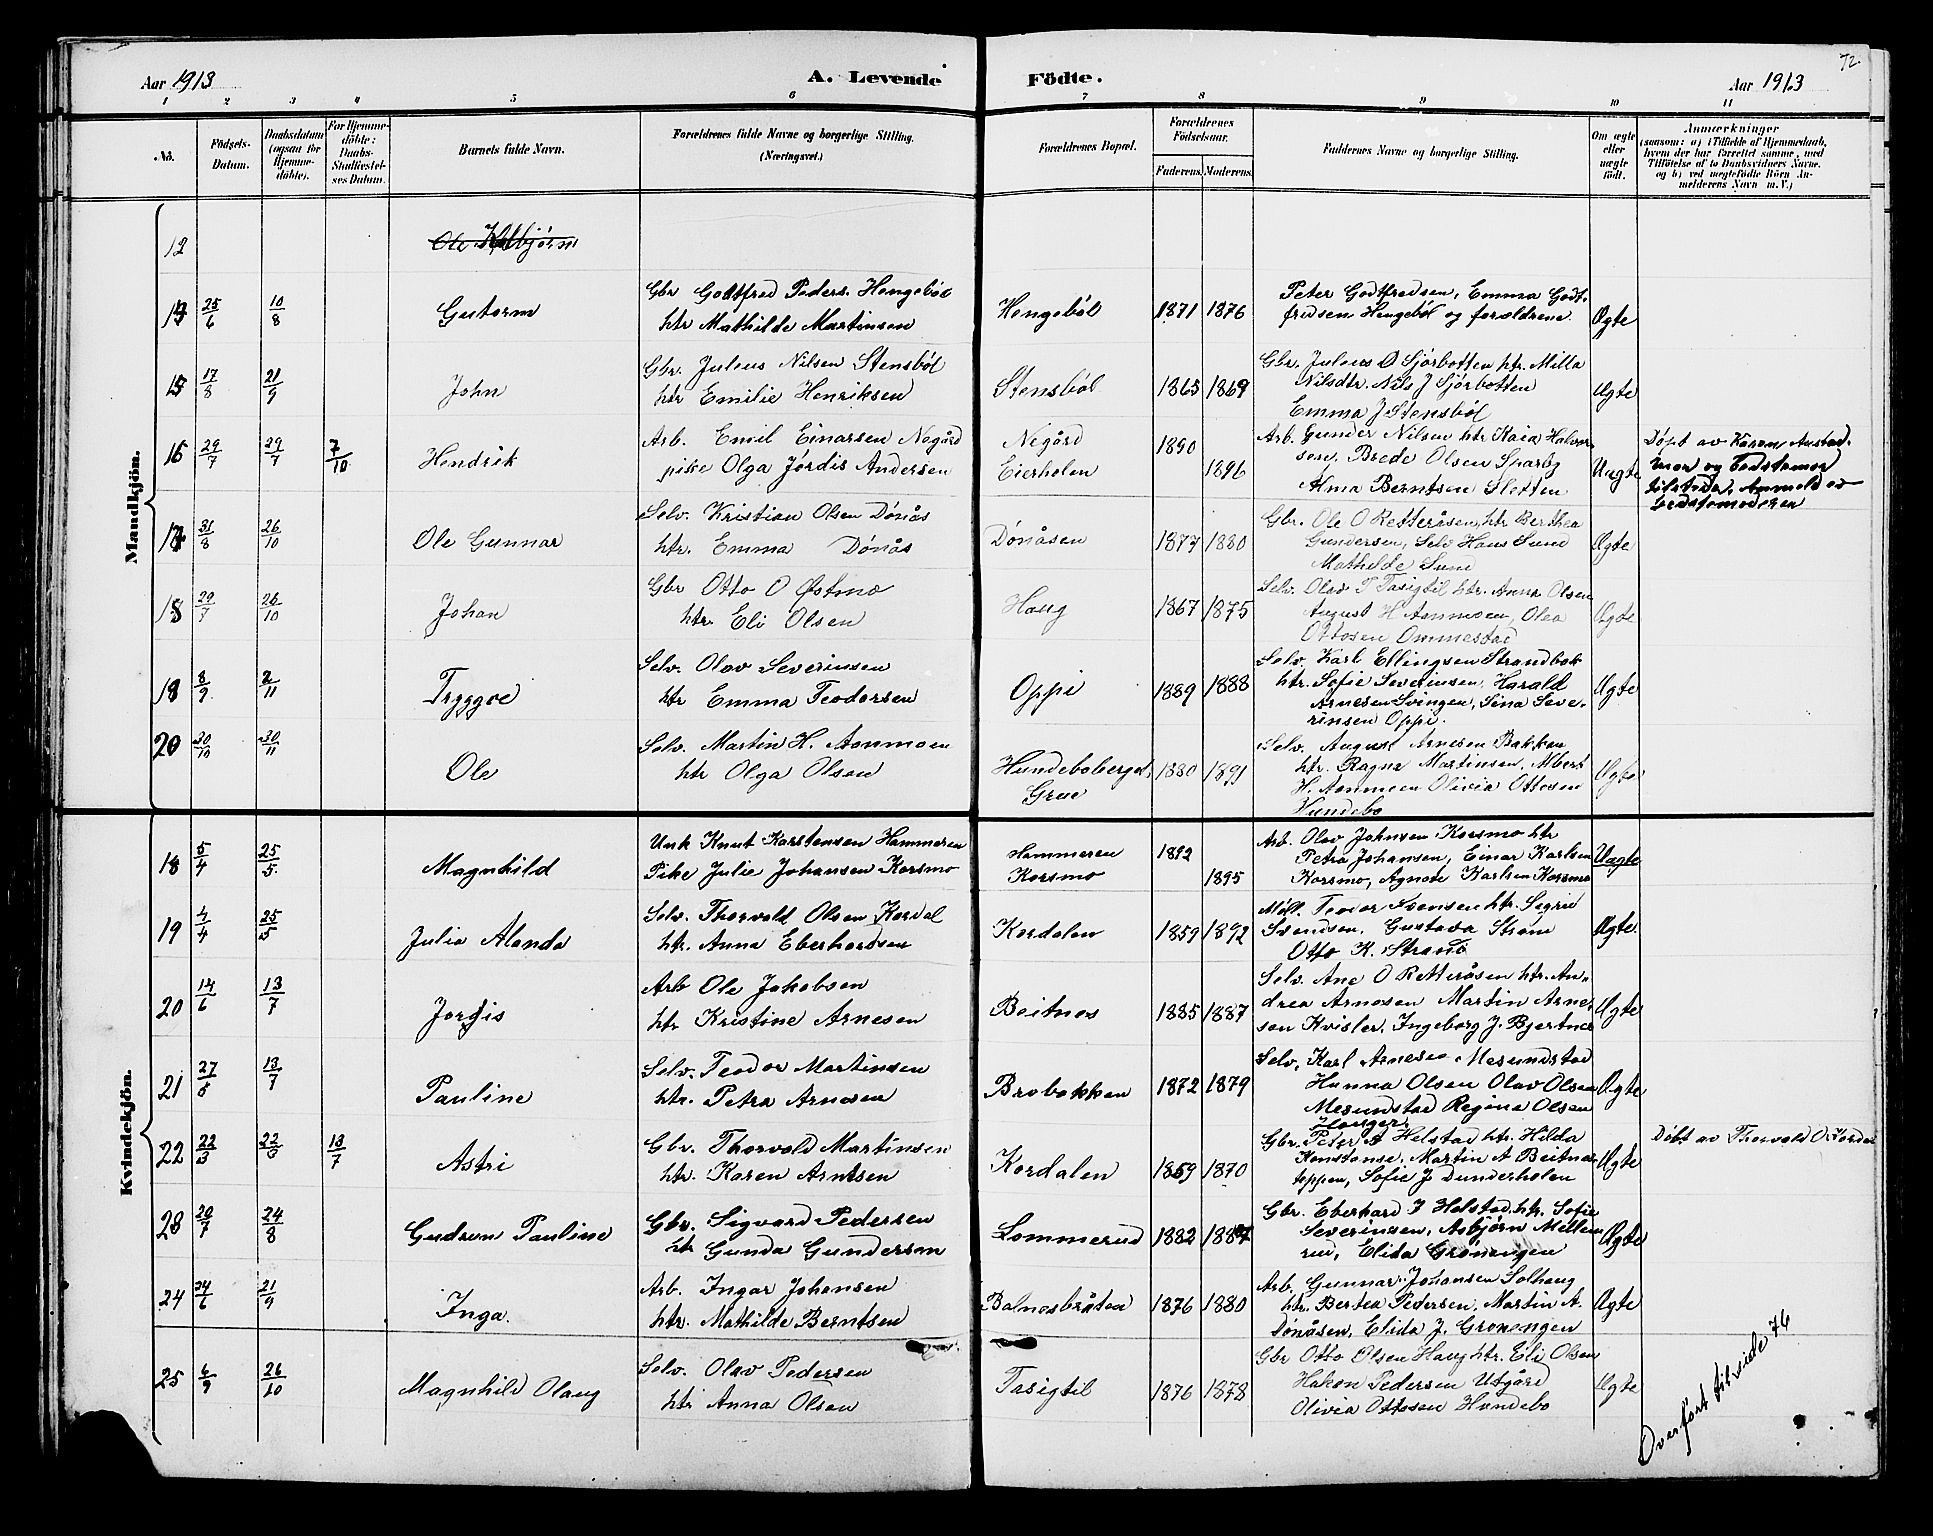 72.
Aar 1913
A. Levende Födte.
Aar 1913
1 2 3 4 5 6 7 8 9 10 11
No.
Födsels-
Datum.
Daabsdatum
(ogsaa for
Hjemme-
döbte).
For Hjemme-
döbte:
Daabs-
Stadfæstel-
ses Datum.
Barnets fulde Navn.
Forældrenes fulde Navne og borgerlige Stilling.
(Næringsvei.)
Forældrenes Bopæl.
Forældrenes
Födselsaar.
Faderens. Moderens.
Faddernes Navne og borgerlige Stilling.
Om ægte
eller
uægte
födt.
Anmærkninger
(saasom: a) i Tilfælde af Hjemmedaab,
hvem der har forrettet samme, med
Tilföielse af to Daabsvidners Navne.
og b) ved uægtefödte Börn An-
melderens Navn m.V.)
Mandkjön.
12
Ole
25/6 10/8 Gutorm
Gbr Godtfred Peders. Hengebøl
htr Mathilde Martinsen
Hengebøl 1871 1876
Peter Godtfredsen, Emma Godt-
fredsen Hengebøl og forældrene.
Ægte
15 17/8 21/9 John
Gbr. Julius Nilsen Stensbøl
htr Emilie Henriksen
Stensbøl 1865 1869
Gbr. Julius O Sjørbotten htr. Milla
Nilsdtr. Nils J Sjørbotten
Emma J Stensbøl
Ægte
16 29/7 29/7 7/10 Hendrik
Arb. Emil Einarsen Negård
pike Olga Jørdis Andersen
Negård
Eierholen
1890
1896
Arb. Gunder Nilsen htr Kaia Halvor-
sen, Brede Olsen Sparby
Alma Berntsen Sletten
Uægte
Døpt av Karen Austad.
mor og Fødstemor
tilstede. Anmeldt av
17 31/8 26/10 Ole Gunnar
Selv. Kristian Olsen Dønås
htr. Emma Dønås
Dønåsen 1877 1880
Gbr. Ole O Retteråsen, htr Berthea
Gundersen, Selv Hans Sund
Mathilde Sund
Ægte
29/7 26/10 Johan
Gbr Otto O Østmo
htr. Eli Olsen
Haug 1867 1875
Selv. Olav P Tasigtil htr. Anna Olsen
August H Aanmoen, Olea
Ottosen Ommestad
Ægte
18 8/9 2/11 Tryggve
Selv. Olav Severinsen
htr Emma Teodorsen
Oppi 1889 1888
Selv. Karl Ellingsen Strandbak
htr. Sofie Severinsen, Harald
Arnesen Svingen, Sina Seve-
rinsen Oppi.
Ægte
20 30/10 30/11 Ole
Selv. Martin H. Aanmoen
htr Olga Olsen
Hundeboberget,
Grue
1880 1891
Selv. August Arnesen Bakken
htr. Ragna Martinsen, Albert
H. Aanmoen Olivia Ottosen
Hundebo
Ægte
Kvindekjön.
18 5/4 25/5. Magnhild
Unk Knut Karstensen Hammeren
Pike Julie Johansen Korsmo
Hammeren
Korsmo
1892
1895
Arb. Olav Johnsen Korsmo htr
Petra Johansen, Einar Karlsen
Korsmo, Agnete Karlsen Korsmo
Uægte
19 4/4 25/5 Julia Alanda
Selv. Thorvald Olsen Kordal
htr. Anna Eberhardsen
Kordalen 1859 1892
Møll. Teodor Svensen htr. Sigrid
Svendsen, Gustava Strøm
Otto K. Strand
Ægte
20 14/6 13/7 Jordis
Arb Ole Jakobsen
htr Kristine Arnesen
Beitnes 1885 1887
Selv. Ane O Retteråsen htr. An-
drea Arnesen Martin Arne-
sen Kvisler, Ingeborg J. Bjertnes
Ægte
21 27/5 13/7 Pauline
Selv. Teodor Martinsen
htr. Petra Arnesen
Brobakken 1872 1879
Selv. Karl Arnesen Mesundstad
Hanna Olsen Olav Olsen
Mesundstad Regina Olsen
Haugeri
Ægte
22 22/3 22/3 13/7 Astri
Gbr. Thorvald Martinsen
htr. Karen Arntsen
Kordalen 1859 1870
Gbr. Peter A Helstad htr. Hilda
Konstanse, Martin A Beitnes-
toppen, Sofie J Dunderholen
Ægte
Døbt av Thorvald O. Kordal
23 20/7 24/8 Gudrun Pauline
Gbr. Sigvard Pedersen
htr Gunda Gundersen
Lommerud 1882 1887
Gbr. Eberhard J Helstad, htr. Sofie
Severinsen, Asbjørn Mellem-
rud, Elida Grønengen
Ægte
24 24/6 21/9 Inga.
Arb. Ingar Johansen
htr. Mathilde Berntsen
Balnesbråten 1876 1880
Arb. Gunnar Johansen Solhaug
htr. Bertea Pedersen, Martin A.
Dønåsen, Elida J. Grønengen
Ægte
25 4/9 26/10 Magnhild Olaug
Selv. Olav Pedersen
htr Anna Olsen
Tasigtil 1876 1878
Gbr Otto Olsen Haug htr. Eli Olsen
Hakon Pedersen Utgård
Olivia Ottosen Hundebo
Ægte
Overført til side 76